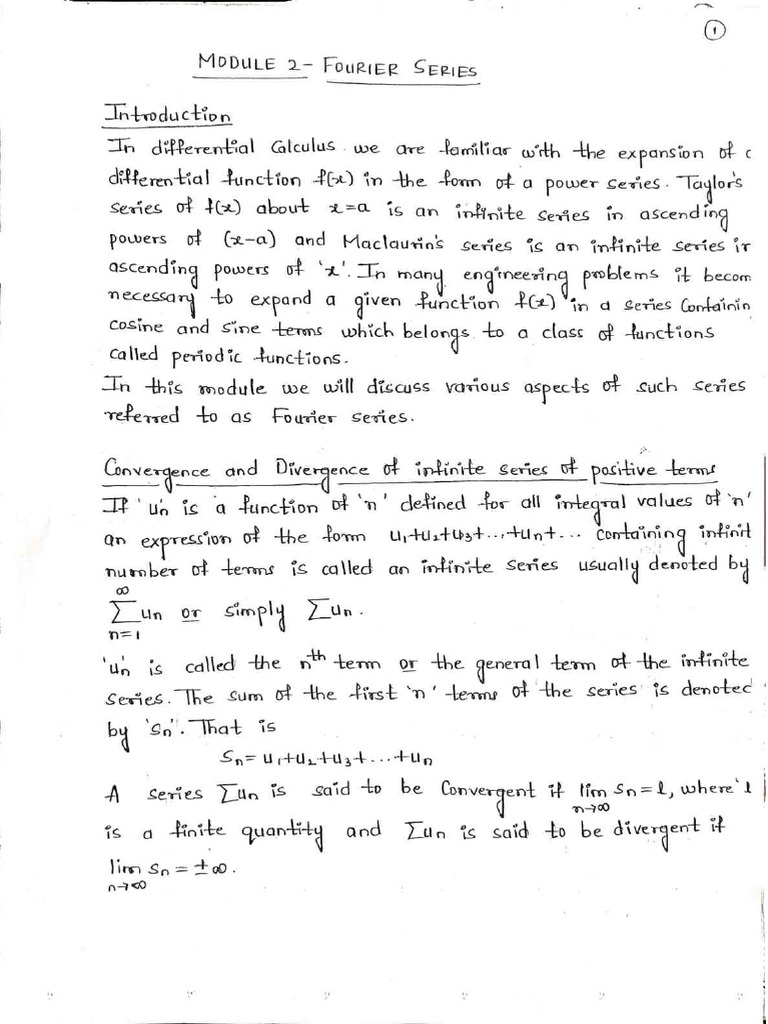 1
MODULE 2 - FOURIER SERIES
Introduction
In differential Calculus we are familiar with the expansion of
differential function f(x) in the form of a power series. Taylor's
series of f(x) about x=a is an infinite series in ascending
powers of (x-a) and Maclaurin's series is an infinite series in
ascending powers of 'x'. In many engineering problems it becom
necessary to expand a given function f(x) in a series Containin
cosine and sine terms which belongs to a class of functions
called periodic functions.
In this module we will discuss various aspects of such series
referred to as Fourier series.
Convergence and Divergence of infinite series of positive terms
If 'un' is a function of 'n' defined for all integral values of 'n'
an expression of the form u₁+u₂+u₃+...+un+... Containing infinit
number of terms is called an infinite series usually denoted by
∞
∑un or simply ∑un.
n=1
'un' is called the nth term or the general term of the infinite
series. The sum of the first 'n' terms of the series is denoted
by 'Sn'. That is
Sn = u₁+u₂+u₃+...+un
A series ∑un is said to be Convergent if lim Sn = l, where 'l
n→∞
is a finite quantity and ∑un is said to be divergent if
lim Sn = ±∞.
n→∞